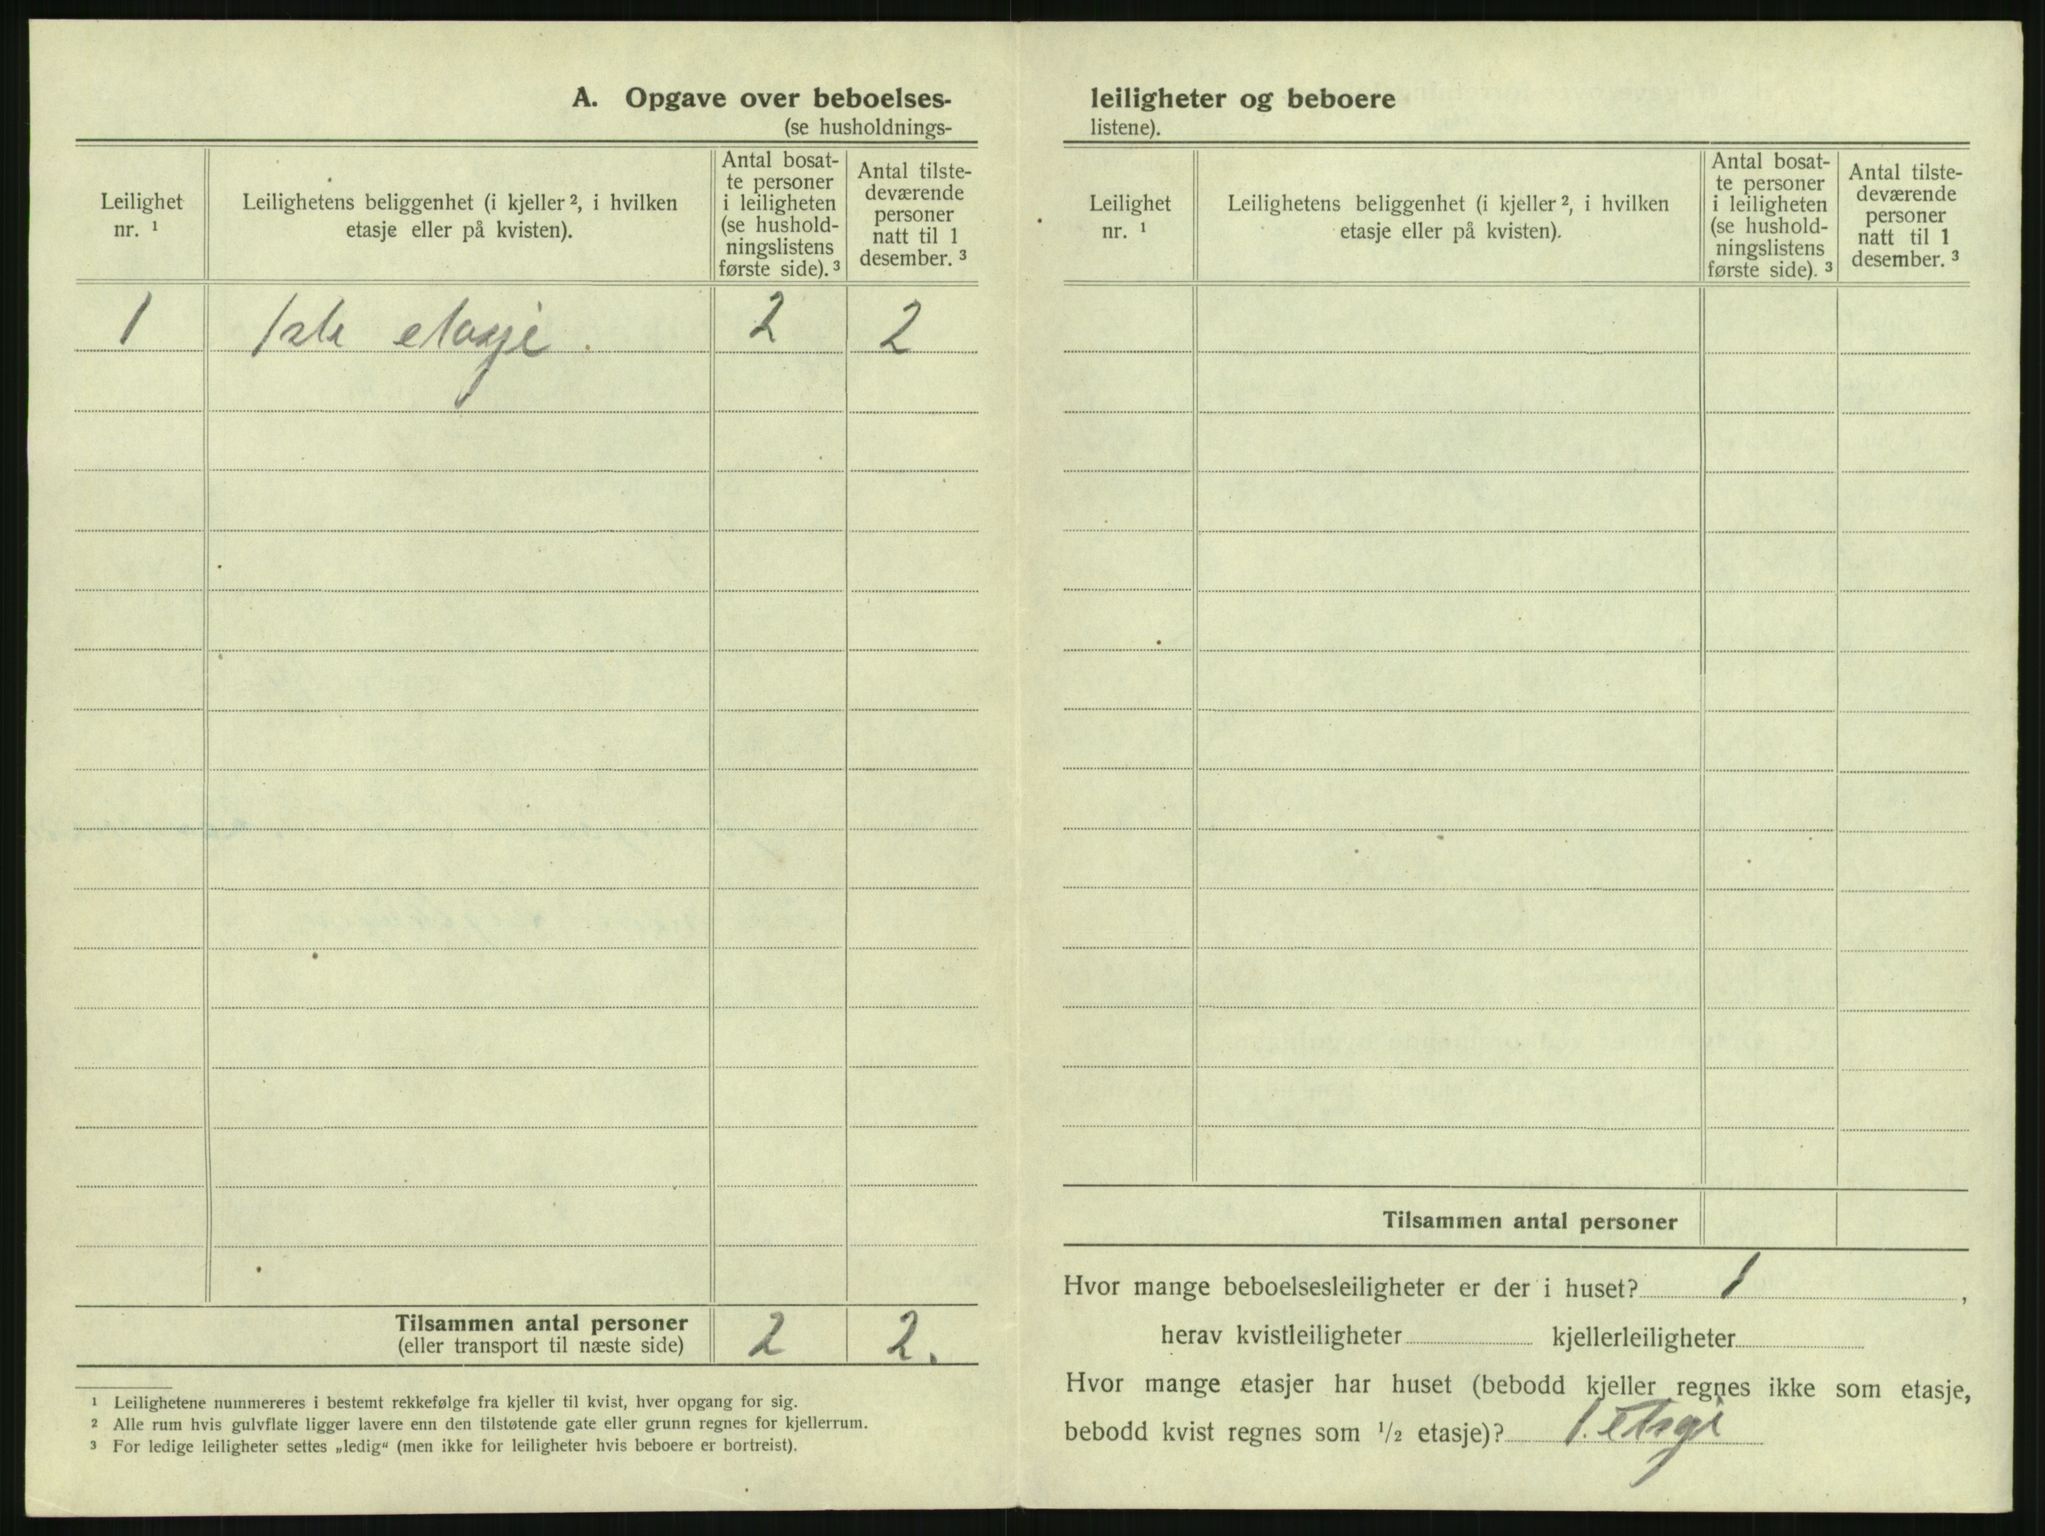 A. Opgave over beboelses-
(se husholdnings-
Leilighet
nr. ¹
Leilighetens beliggenhet (i kjeller ², i hvilken
etasje eller på kvisten).
Antal bosat-
te personer
i leiligheten
(se hushold-
ningslistens
første side). ³
Antal tilste-
deværende
personer
natt til 1
desember. ³
1 1ste etasje. 2 2
Tilsammen antal personer 2 2.
(eller transport til næste side)
¹ Leilighetene nummereres i bestemt rekkefølge fra kjeller til kvist, hver opgang for sig.
² Alle rum hvis gulvflate ligger lavere enn den tilstøtende gate eller grunn regnes for kjellerrum.
³ For ledige leiligheter settes „ledig“ (men ikke for leiligheter hvis beboere er bortreist).
leiligheter og beboere
listene).
Leilighet
nr. ¹
Leilighetens beliggenhet (i kjeller ², i hvilken
etasje eller på kvisten).
Antal bosat-
te personer
i leiligheten
(se hushold-
ningslistens
første side). ³
Antal tilste-
deværende
personer
natt til 1
desember. ³
Tilsammen antal personer
Hvor mange beboelsesleiligheter er der i huset? 1,
herav kvistleiligheter kjellerleiligheter
Hvor mange etasjer har huset (bebodd kjeller regnes ikke som etasje,
bebodd kvist regnes som ¹/₂ etasje)? 1.